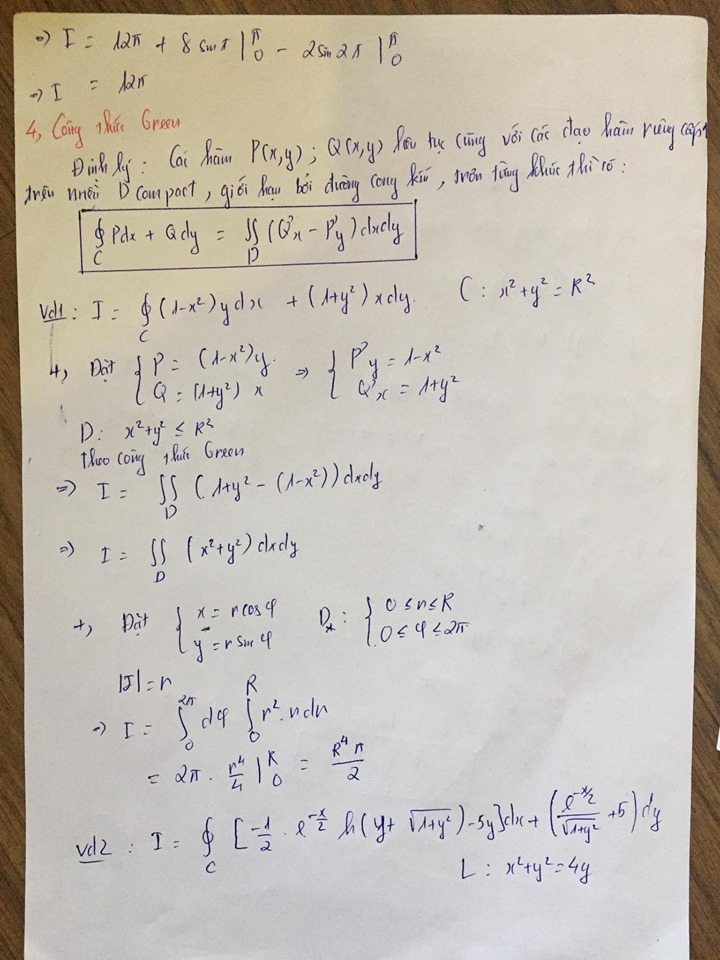 => I = 12π + 8 sin x |₀^π − 2 sin 2x |₀^π
=> I = 12π
4, Công thức Green
Định lý : Các hàm P(x,y) ; Q(x,y) liên tục cùng với các đạo hàm riêng cấp 1
trên miền D compact, giới hạn bởi đường cong kín, trơn từng khúc thì có :
∮_C Pdx + Qdy = ∬_D (Q'x − P'y) dxdy
Vd1 : I = ∮_C (1−x²) y dx + (1+y²) x dy. C : x²+y² = R²
+, Đặt { P = (1−x²)y. Q = (1+y²) x => { P'y = 1−x² Q'x = 1+y²
D: x²+y² ≤ R²
Theo công thức Green
=> I = ∬_D (1+y² − (1−x²)) dxdy
=> I = ∬_D (x²+y²) dxdy
+, Đặt { x = r cos φ y = r sin φ D* : { 0 ≤ r ≤ R 0 ≤ φ ≤ 2π
|J| = r
=> I = ∫₀^2π dφ ∫₀^R r². r dr
= 2π . r⁴/4 |₀^R = R⁴π/2
Vd2 : I = ∮_C [ −1/2 . e^(−x/2) ln(y+ √(1+y²)) − 5y] dx + (e^(−x/2)/√(1+y²) + 5) dy
L : x²+y² = 4y